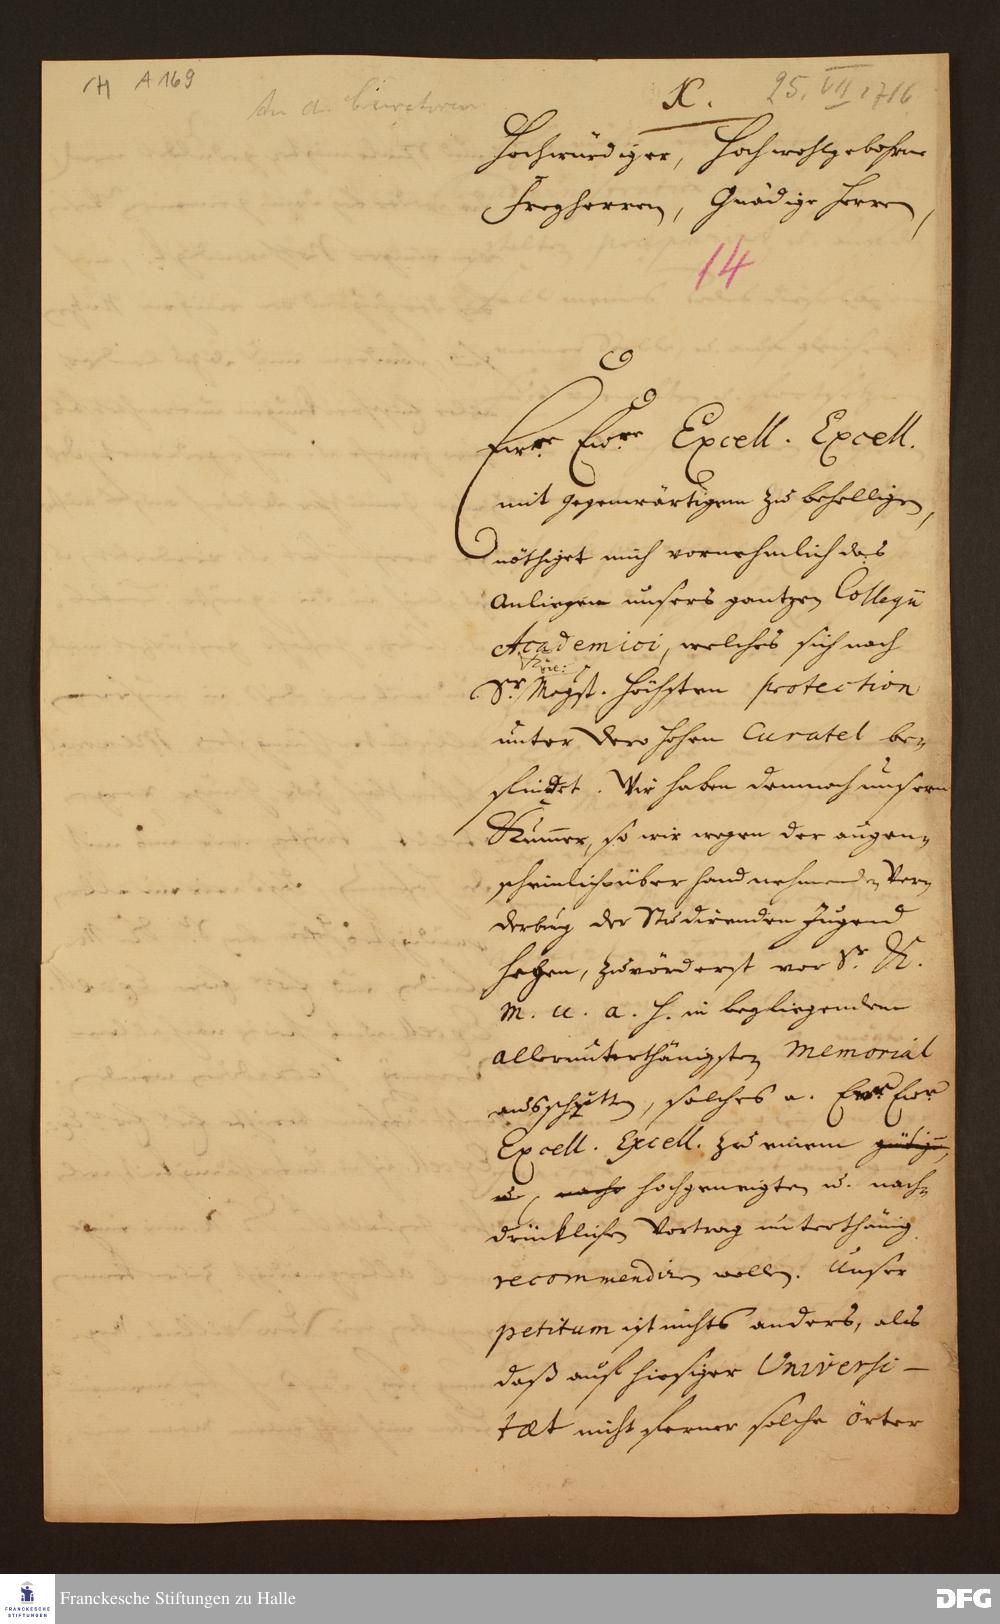 A 169
An d. Curatoren
X.
25. VII 1716
Hochwürdiger, Hochwohlgebohrne
Freyherren, Gnädige Herren,
14
Ewre Ewre Excell. Excell.
mit gegenwärtigem zu behelligen,
nöthiget mich vornehmlich das
Anliegen unsers gantzen Collegii
Academici, welches sich nach
Sr. Kön: Mayst. höchsten protection
unter Dero hohen Curatel be-
findet. Wir haben demnach unsern
Kummer, so wir wegen der augen-
scheinlich überhand nehmenden Ver-
derbung der Studirenden Jugend
hegen, zuvörderst vor Sr. K.
M. u. a. h. in beyliegendem
allerunterthänigsten Memorial
ausschütten, solches a. Ewre Ewr
Excell. Excell. zu einem gütigen,
u, nach hochgeneigten u. nach-
drücklichen Vortrag unterthänig
recommendiren wollen. Unser
petitum ist nichts anders, als
daß auf hiesiger Universi-
tæt nicht ferner solche örter
Franckesche Stiftungen zu Halle
FRANCKESCHE
STIFTUNGEN
DFG